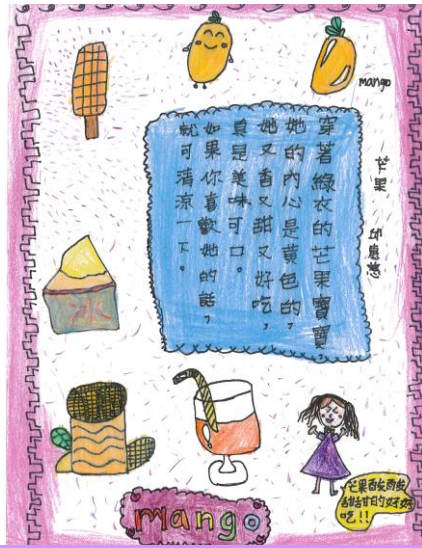 mango
芒果
穿著綠衣的芒果寶寶,
她的內心是黃色的,
她又香又甜又好吃,
真是美味可口。
如果你喜歡她的話,
就可清涼一下。
冰
芒果酸酸
甜甜的好好
吃!!
mango